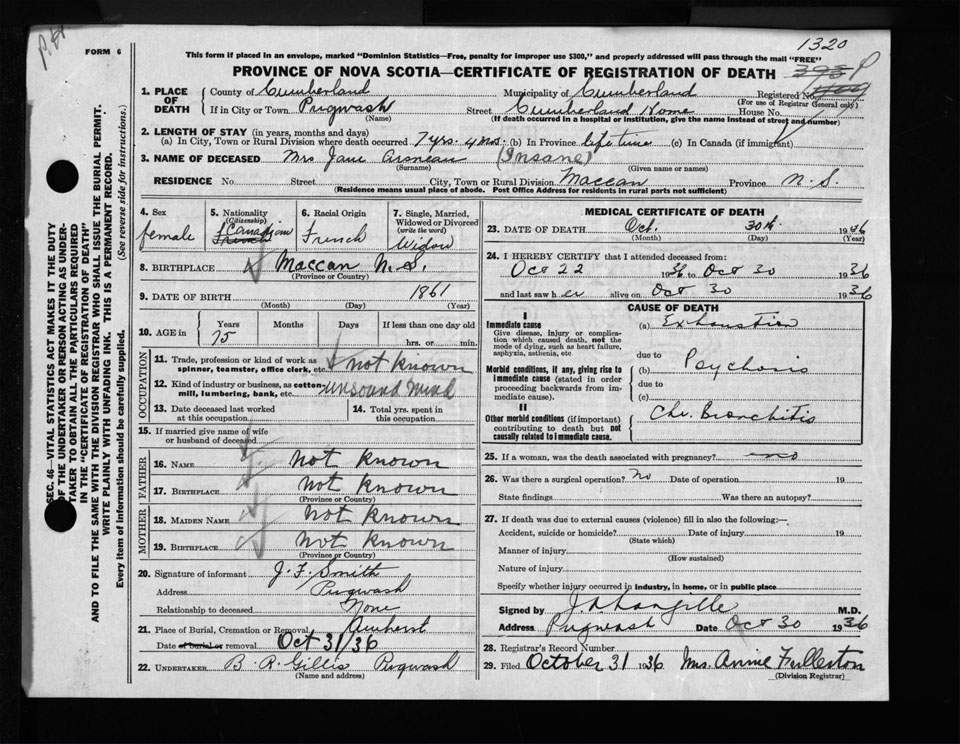 FORM 6
1320
This form if placed in an envelope, marked "Dominion Statistics—Free, penalty for improper use $300," and properly addressed will pass through the mail "FREE"
PROVINCE OF NOVA SCOTIA—CERTIFICATE OF REGISTRATION OF DEATH
393 P
SEC. 46—VITAL STATISTICS ACT MAKES IT THE DUTY
OF THE UNDERTAKER OR PERSON ACTING AS UNDER-
TAKER TO OBTAIN ALL THE PARTICULARS REQUIRED
IN THE "CERTIFICATE OF REGISTRATION OF DEATH"
AND TO FILE THE SAME WITH THE DIVISION REGISTRAR WHO SHALL ISSUE THE BURIAL PERMIT.
WRITE PLAINLY WITH UNFADING INK. THIS IS A PERMANENT RECORD.
Every item of information should be carefully supplied. (See reverse side for instructions.)
1. PLACE OF DEATH County of Cumberland Municipality of Cumberland Registered No.
(For use of Registrar General only)
If in City or Town Pugwash Street Cumberland Home House No.
(Name) (If death occurred in a hospital or institution, give the name instead of street and number)
2. LENGTH OF STAY (in years, months and days)
(a) In City, Town or Rural Division where death occurred 7 yrs. 4 mos. (b) In Province life time (c) In Canada (if immigrant)
3. NAME OF DECEASED Mrs Jane Arsneau (Insane)
(Surname) (Given name or names)
RESIDENCE No. Street City, Town or Rural Division Maccan Province N. S.
(Residence means usual place of abode. Post Office Address for residents in rural parts not sufficient)
4. Sex
female
5. Nationality
(Citizenship)
Canadian
French
6. Racial Origin
French
7. Single, Married,
Widowed or Divorced
(write the word)
Widow
8. BIRTHPLACE Maccan N. S.
(Province or Country)
9. DATE OF BIRTH 1861
(Month) (Day) (Year)
10. AGE in Years Months Days If less than one day old
75 hrs. or min.
OCCUPATION
11. Trade, profession or kind of work as
spinner, teamster, office clerk, etc. not known
12. Kind of industry or business, as cotton
mill, lumbering, bank, etc. unsound mind
13. Date deceased last worked
at this occupation
14. Total yrs. spent in
this occupation
15. If married give name of wife
or husband of deceased
FATHER
16. NAME Not known
17. BIRTHPLACE Not known
(Province or Country)
MOTHER
18. MAIDEN NAME Not known
19. BIRTHPLACE Not known
(Province or Country)
20. Signature of informant J. F. Smith
Address Pugwash
Relationship to deceased None
21. Place of Burial, Cremation or Removal Amherst
Date of burial or removal Oct 31/36
22. UNDERTAKER B. R. Gillis Pugwash
(Name and address)
MEDICAL CERTIFICATE OF DEATH
23. DATE OF DEATH Oct. 30th 1936
(Month) (Day) (Year)
24. I HEREBY CERTIFY that I attended deceased from:
Oct 22 1936 to Oct 30 1936
and last saw her alive on Oct 30 1936
CAUSE OF DEATH
I
Immediate cause
Give disease, injury or complica-
tion which caused death, not the
mode of dying, such as heart failure,
asphyxia, asthenia, etc
(a) Exhaustion
due to
Morbid conditions, if any, giving rise to
immediate cause (stated in order
proceeding backwards from im-
mediate cause).
(b) Psychosis
due to
(c)
II
Other morbid conditions (if important)
contributing to death but not
causally related to immediate cause.
Chr. Bronchitis
25. If a woman, was the death associated with pregnancy? no
26. Was there a surgical operation? No Date of operation 19
State findings Was there an autopsy?
27. If death was due to external causes (violence) fill in also the following:—
Accident, suicide or homicide? Date of injury 19
(State which)
Manner of injury
(How sustained)
Nature of injury
Specify whether injury occurred in industry, in home, or in public place
Signed by J. A. Langille M.D.
Address Pugwash Date Oct 30 1936
28. Registrar's Record Number
29. Filed October 31 1936 Mrs. Annie Fullerton
(Division Registrar)